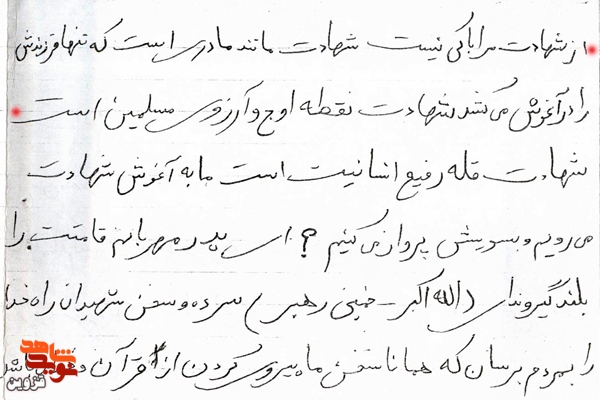 از شهادت مرا باکی نیست شهادت مانند مادری است که تنها فرزندش
را در آغوش می کشد شهادت نقطه اوج و آرزوی مسلمین است
شهادت قله رفیع انسانیت است ما به آغوش شهادت
می رویم و بسویش پرواز می کنیم ؟ ای پدر مهربانم قامتت را
بلند گیر و ندای (الله اکبر - خمینی رهبر) سر ده و سخن شهیدان راه خدا
را بمردم برسان که همانا سخن ما پیروی کردن از قرآن
نوید شاهد
قزوین